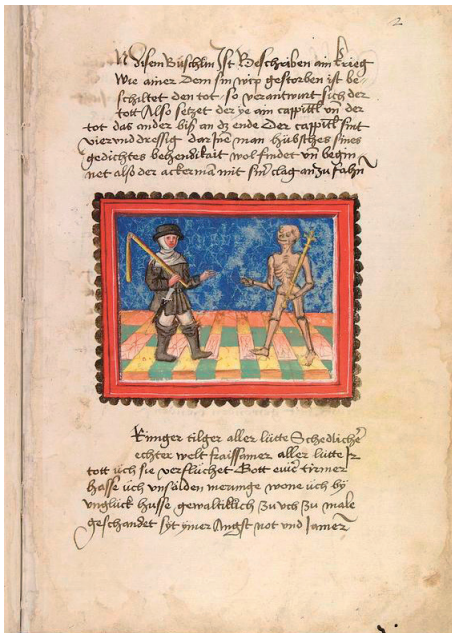 2
In disem büschlin ist beschriben ain krieg
wie ainer dem sin wip gestorben ist be-
schiltet den tot so verantwurt sich der
tott Also setzet der ye ain cappittl vnd der
tot das ander biß an dz ende Der cappittl sint
vier vnd dressig dar Jne man hübsches sines
gedichtes behendikait wol findet vnd begin
net also der ackerman mit sinr clag an zu fahn
Grimger tilger aller lütte Schedlicher
echter welt fraissamer aller lütte Ir
tott üch sie verflüchet Gott tirmer
hasse üch vnsälden merunge wone üch by
vnglück husse gewaltiklich zu vch zu male
geschandet syt ymer Angst not vnd Jamer